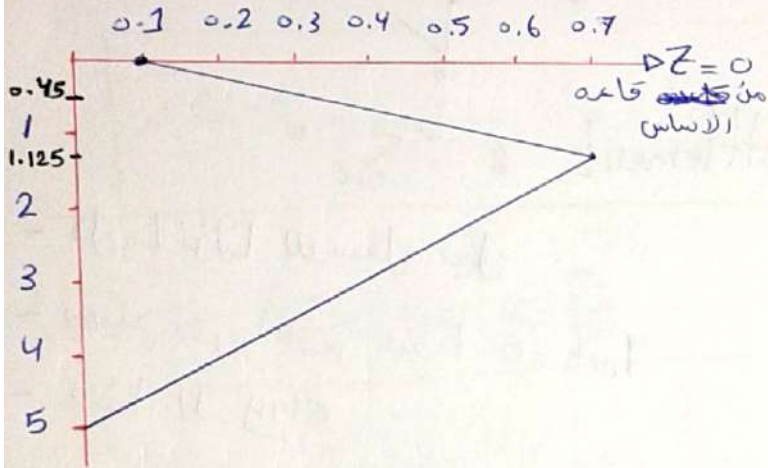 0.1 0.2 0.3 0.4 0.5 0.6 0.7
Z = 0
0.45
من قاعده
1
الاساس
1.125
2
3
4
5